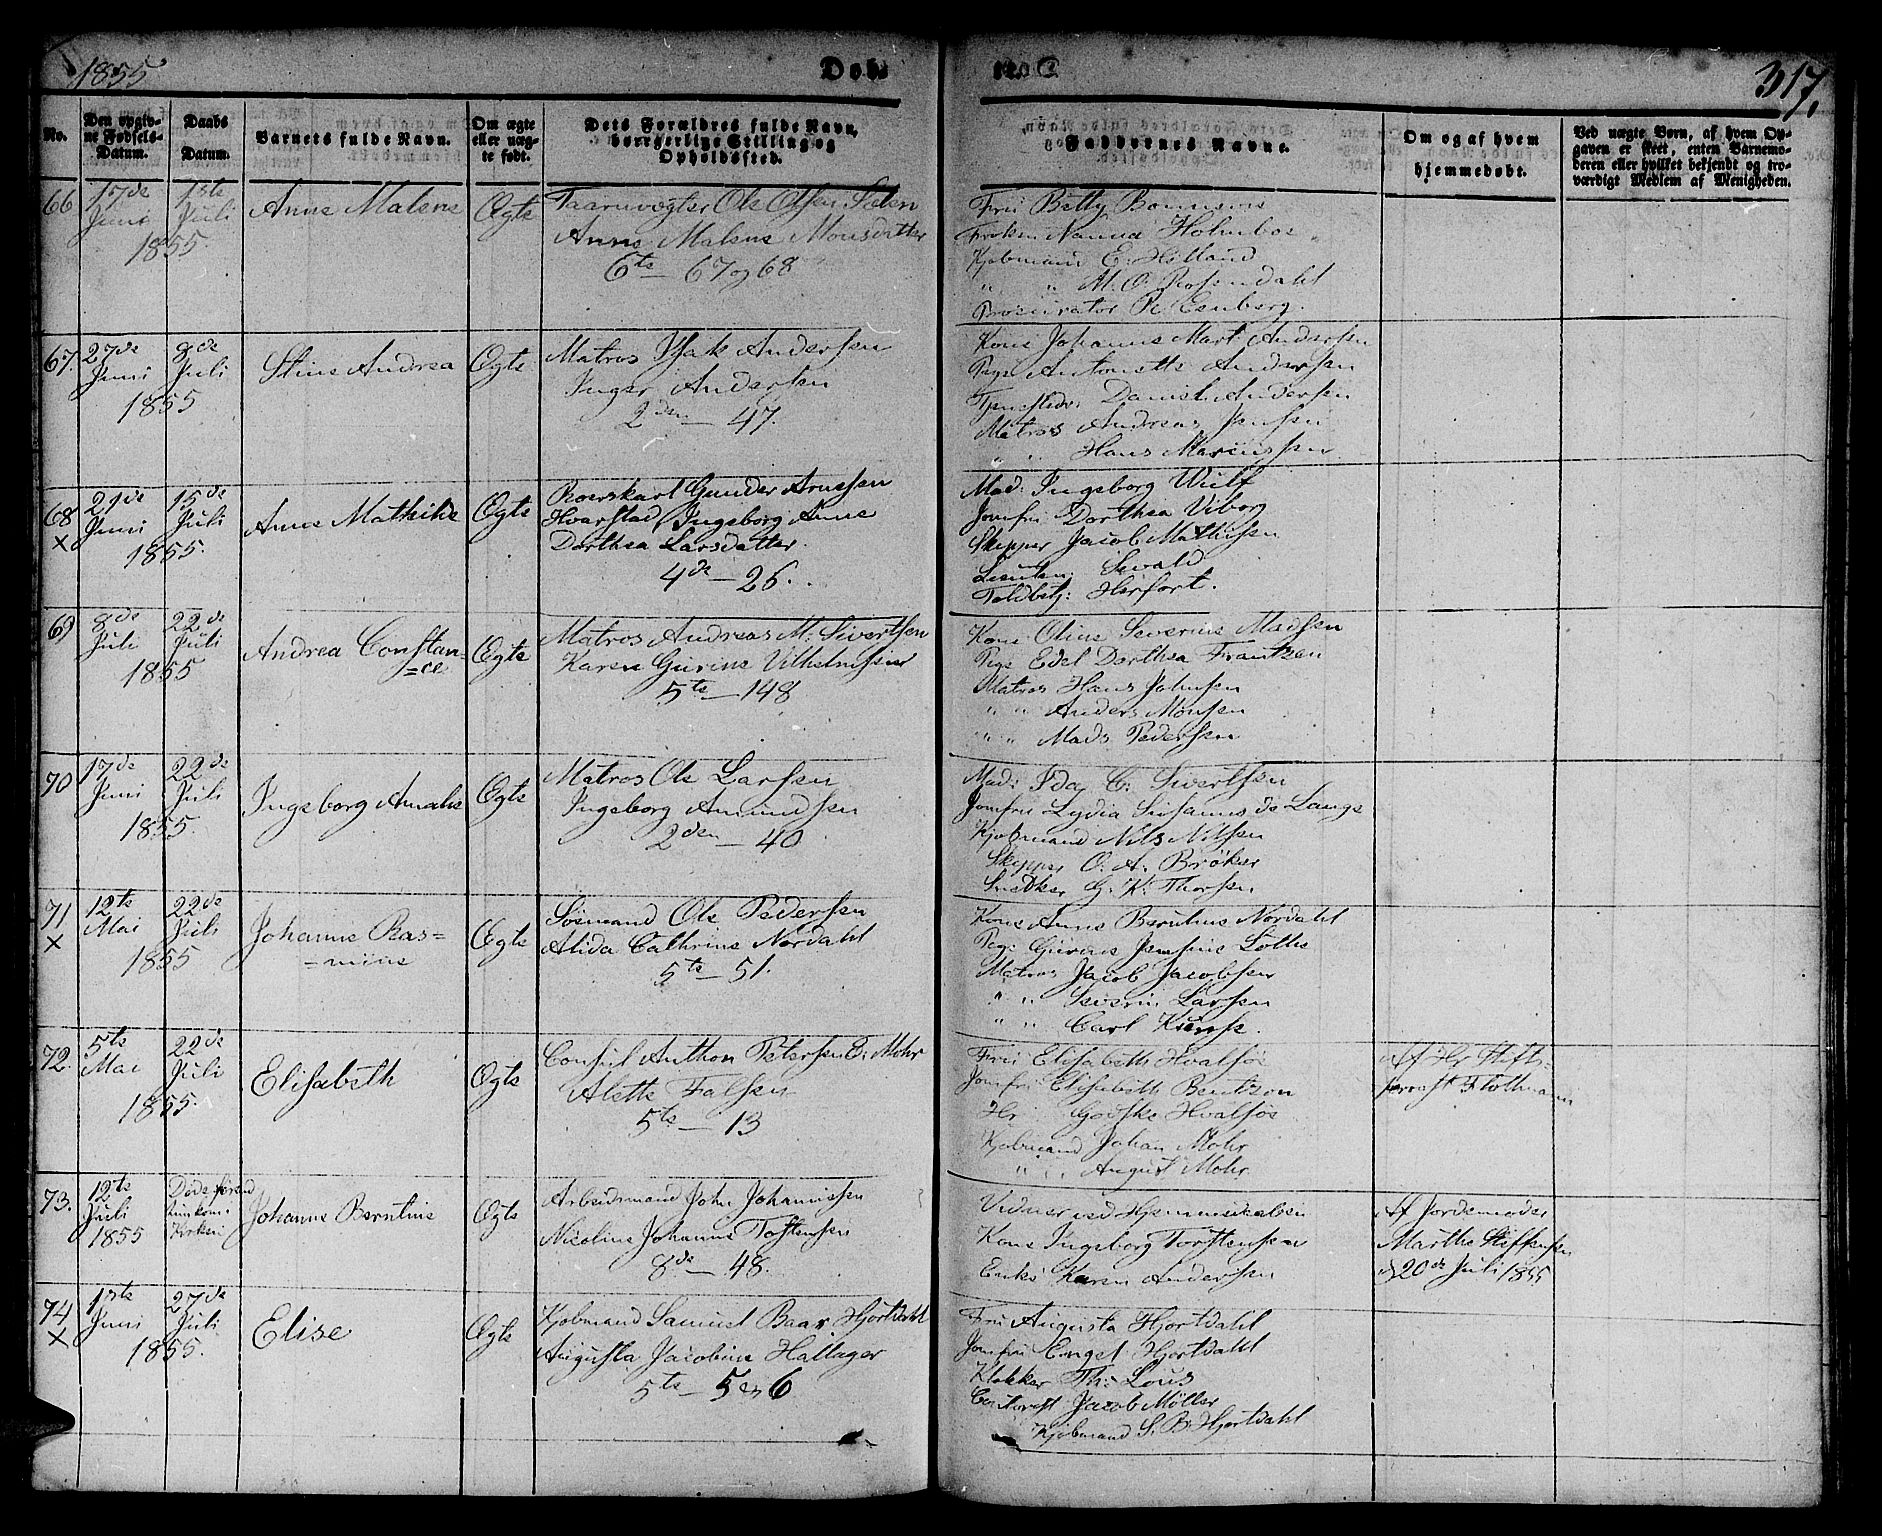 1855
Døbte
317.
No.
Den opgiv-
ne Fødsels-
Datum.
Daabs
Datum.
Barnets fulde Navn.
Om ægte
eller uæg-
te født.
Dets Forældres fulde Navn,
borgerlige Stilling og
Opholdssted.
Faddernes Navne.
Om og af hvem
hjemmedøbt.
Ved uægte Børn, af hvem Op-
gaven er skeet, enten Barnemo-
deren eller hvilket bekjendt og tro-
værdigt Medlem af Menigheden.
66
17de Juni
1ste Juli
1855
Anne Malene
Ægte
Taarnvægter Ole Olsen
Anne Malene Monsdatter
6te – 67 og 68
Frü Betty
Frøken Nanna Holmboe
Kjøbmand E: Hølland
" " M. O. Rosendahl
Procürator
67.
27de Juni
8de Juli
1855
Stine Andrea
Ægte
Matros Isak Andersen
Inger Andersen
2den – 47.
Kone Johanne Mart Andersen
Pige Antonette Andersen
Daniel Andersen
Matros Andreas Jensen
" " Hans Marcüssen
68
×
21de Juni
15de Juli
1855.
Anne Mathilde
Ægte
Roerskarl Gunder Arnesen
Hvarstad, Ingeborg Anne
Dorthea Larsdatter.
4de – 26.
Mad: Ingeborg Wulf
Jomfrü Dorthea Viborg
Skipper Jacob Mathisen
Lieuten: Siwald
Toldbetj: Herfort.
69
8de Juli
22de Juli
1855
Andrea Constan-
=ce
Ægte
Matros Andreas M: Sivertsen
Karen Gurine Vilhelmsen
5te – 148
Kone Oline Severine Madsen
Pige Edel Dorthea Frantzen
Matros Hans Johnsen
" " Anders Monsen
" " Mads Pedersen
70
17de Juni
22de Juli
1855
Ingeborg Amalie
Ægte
Matros Ole Larsen
Ingeborg Amundsen
2den – 40
Mad: Ida C: Sivertsen
Jomfrü Lydia Süsanne de Lange
Kjøbmand Nils Nilsen
Skipper O. A. Brøker
Snedker G. K. Thorsen
71
×
12te Mai
22de Juli
1855
Johanne Ras=
=mine
Ægte
Sømand Ole Pedersen
Alida Cathrine Nordahl
5te – 51.
Kone Anne Berntine Nordahl
Pige Gürine Josefine Lothe
Matros Jacob Jacobsen
" " Severin Larsen
" " Carl
72.
5te Mai
22de Juli
1855.
Elisabeth
Ægte
Consül Anthon Petersen E: Mohr
Alette Falsen
5te – 13
Frü Elisabeth Hvalsøe
Jomfrü Elisabeth Bentzon
Hr: Godske Hvalsøe
Kjøbmand Johan Mohr
" " August Mohr
Af Hr Stifts-
provst Flottmann
73.
12te Juli
1855
Døde førend
Kirken
Johanne Berntine
Ægte
Arbeidsmand John Johannessen
Nicoline Johanne Tostensen
8de – 48.
Vidner ved Hjemmedaaben
Kone Ingeborg Torstensen
Enke Karen Andersen
Af Jordemoder
Marthe Steffensen
20de Juli 1855
74
×
1ste Juni
27de Juli
1855.
Elise
Ægte
Kjøbmand Samuel Baar Hjortdahl
Augusta Jacobine Hallager
5te – 5 og 6
Frü Augusta Hjortdahl
Jomfrü Engel Hjortdahl
Klokker Th: Loüs
Jacob Møller
Kjøbmand S. B. Hjortdahl